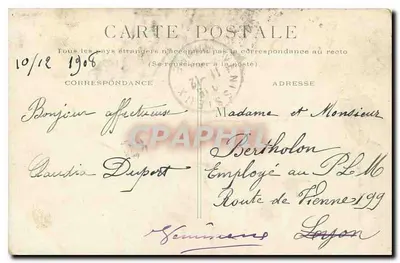 CARTE POSTALE
10/12 1908
Tous les pays étrangers n'acceptent pas la correspondance au recto
(Se renseigner à la poste)
CORRESPONDANCE
ADRESSE
Bonjour affectueux
Claudia Dupert
Madame et Monsieur
Bertholon
Employé au P.L.M
Route de Vienne 199
Lyon
Vénissieux
CPAPHIL